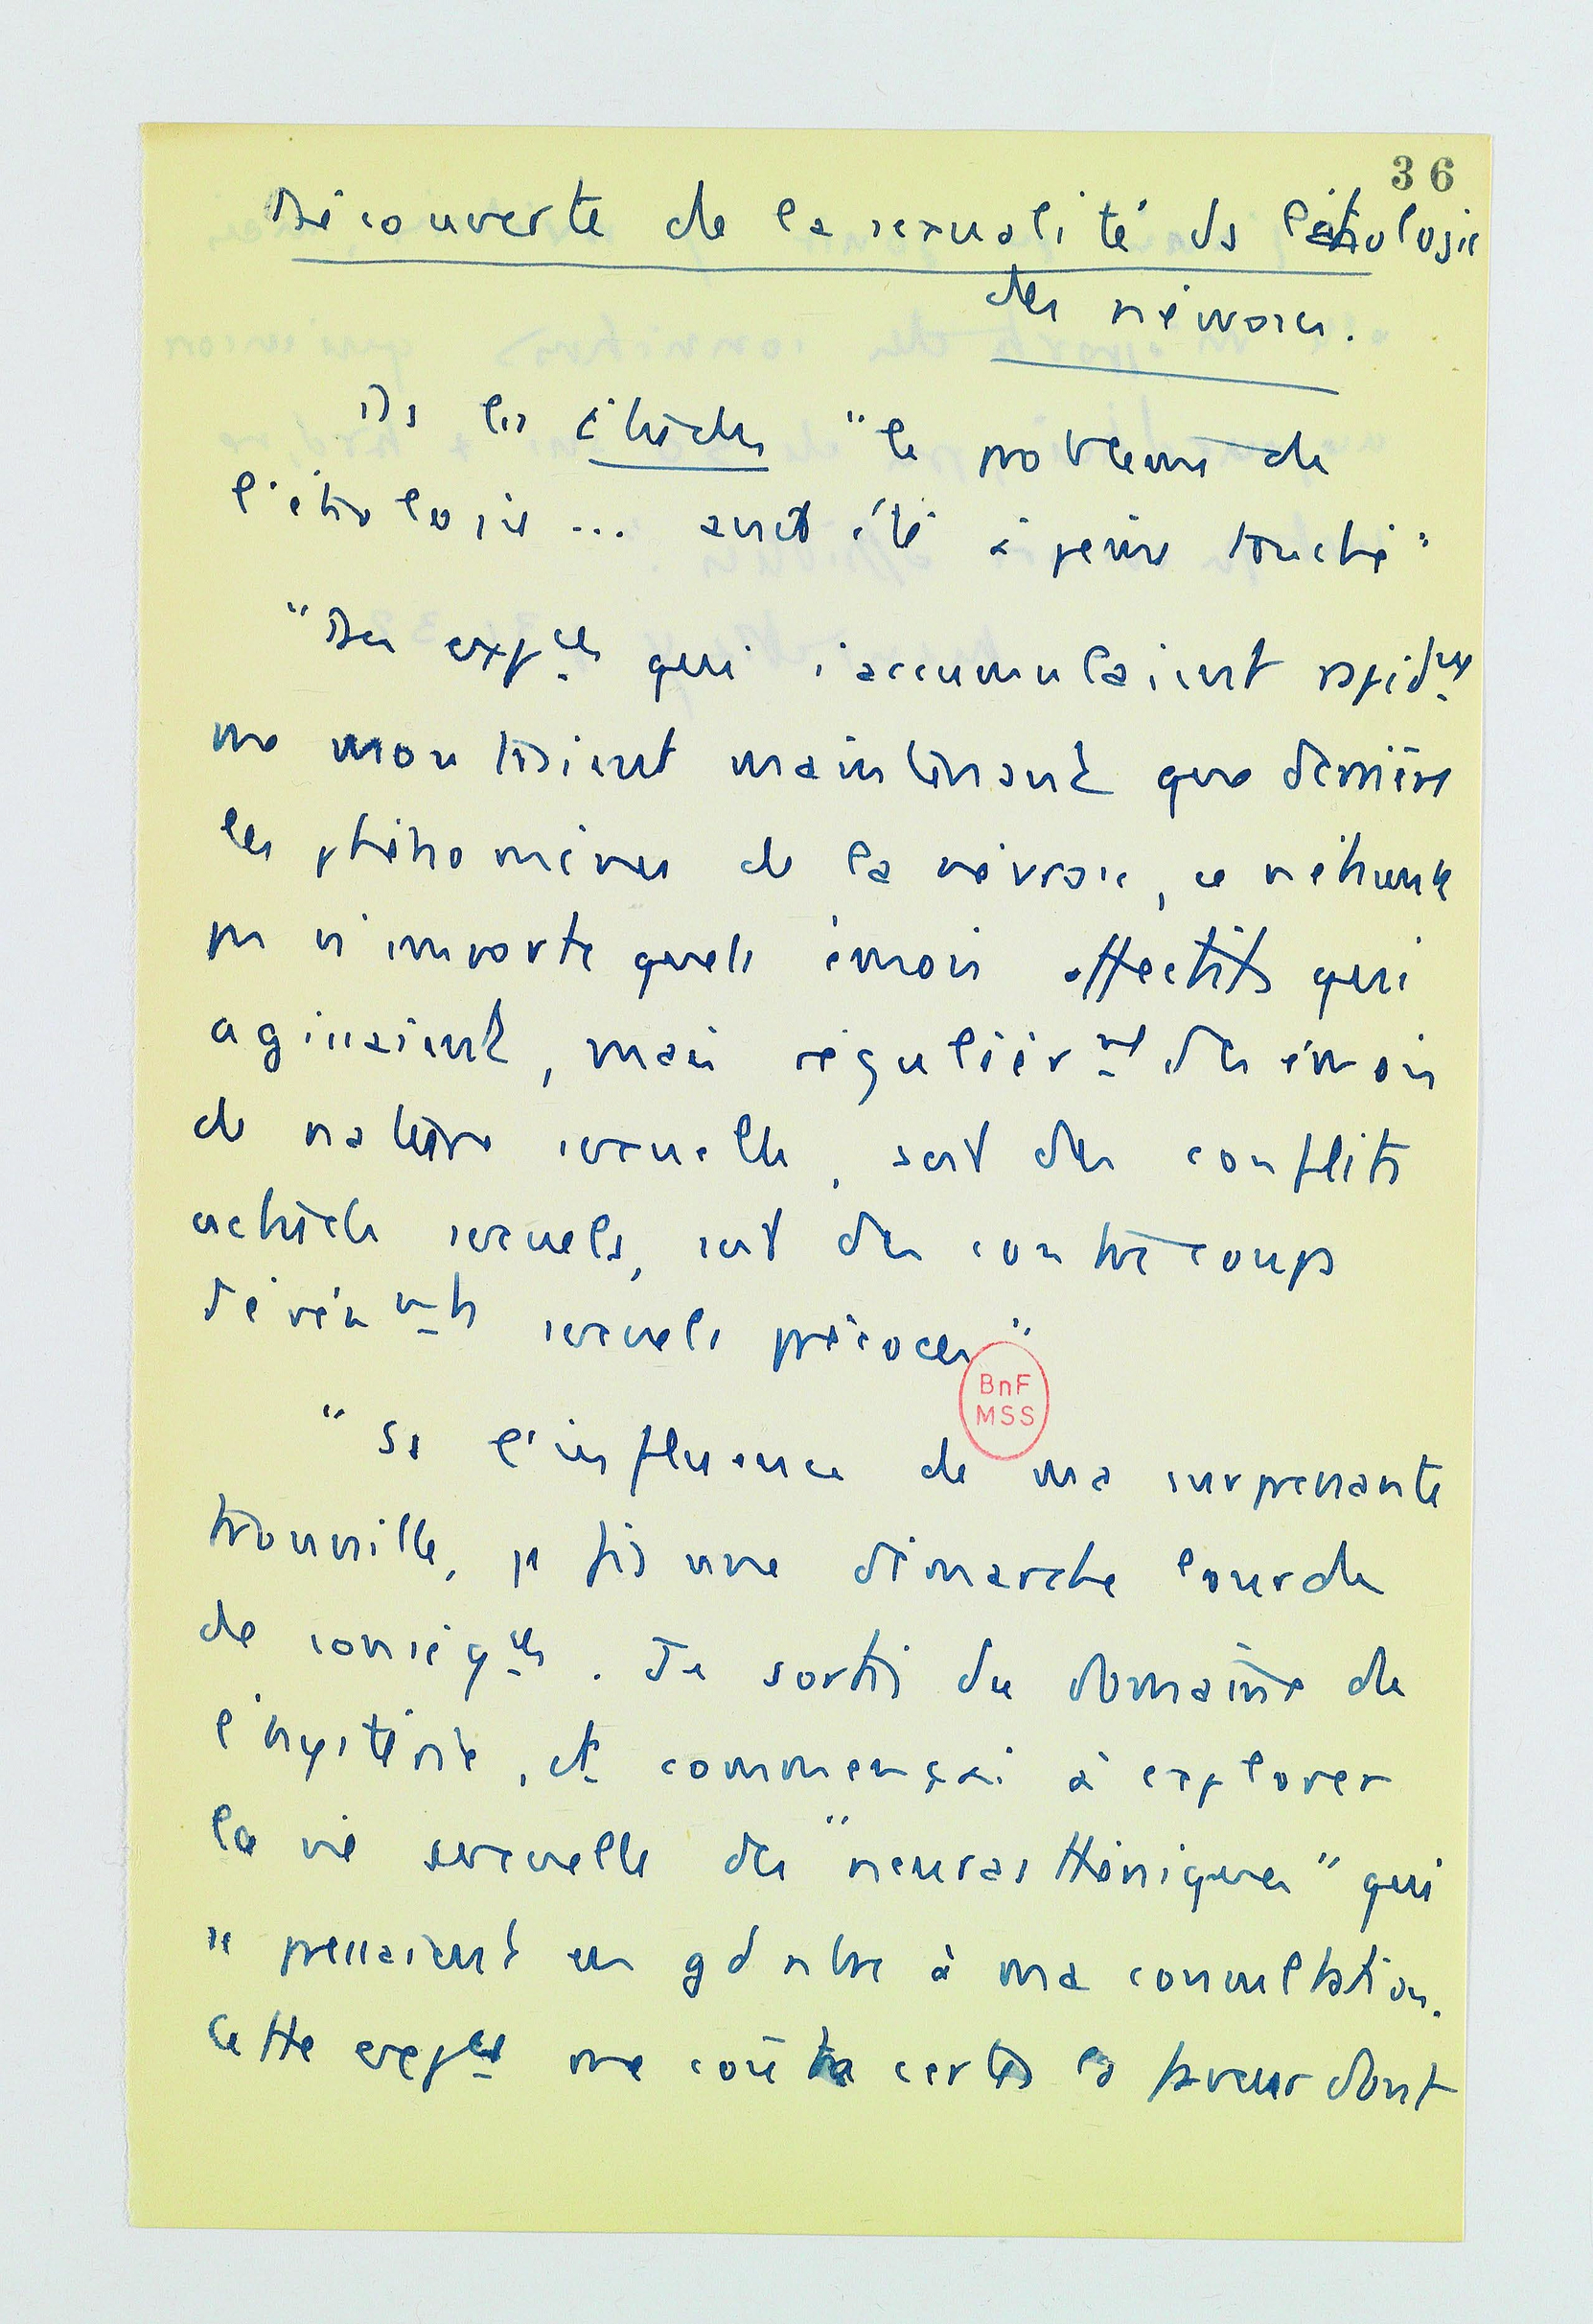 36
Découverte de la sexualité ds l'étiologie
des névroses.
Ds les Etudes "le problème de
l'étiologie... avait été à peine touché"
"Des expces qui s'accumulaient rapidmt
me montraient maintenant que derrière
les phénomènes de la névrose, ce n'étaient
pas n'importe quels émois affectifs qui
agissaient, mais régulièrmt des émois
de nature sexuelle, soit des conflits
actuels sexuels, soit des contrecoups
d'événmts sexuels précoces"
BnF
MSS
"Ss l'influence de ma surprenante
trouvaille, je fis une démarche lourde
de conséqces. Je sortis du domaine de
l'hystérie, et commençai à explorer
la vie sexuelle des "neurasthéniques" qui
se pressaient en gd nbre à ma consultation.
Cette expce me coûta certes la faveur dont